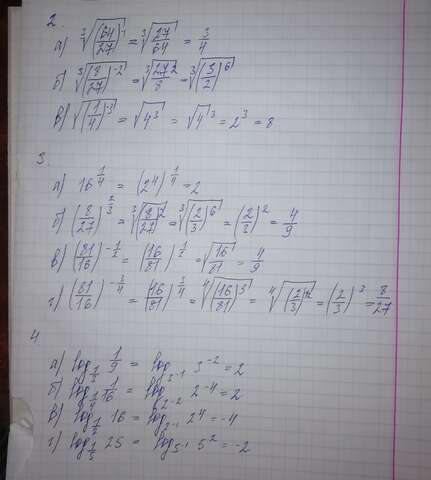 2.
а) ∛((64/27)^-1) = ∛(27/64) = 3/4
б) ∛((8/27)^-2) = ∛(27/8)^2 = ∛((3/2)^6)
в) √((1/4)^-3) = √(4^3) = √4^3 = 2^3 = 8
3.
а) 16^(1/4) = (2^4)^(1/4) = 2
б) (8/27)^(2/3) = ∛((8/27)^2) = ∛((2/3)^6) = (2/3)^2 = 4/9
в) (81/16)^(-1/2) = (16/81)^(1/2) = √(16/81) = 4/9
г) (81/16)^(-3/4) = (16/81)^(3/4) = ∜((16/81)^3) = ∜((2/3)^12) = (2/3)^3 = 8/27
4
а) log_(1/3) 1/9 = log_(3^-1) 3^-2 = 2
б) log_(1/4) 1/16 = log_(2^-2) 2^-4 = 2
в) log_(1/2) 16 = log_(2^-1) 2^4 = -4
г) log_(1/5) 25 = log_(5^-1) 5^2 = -2